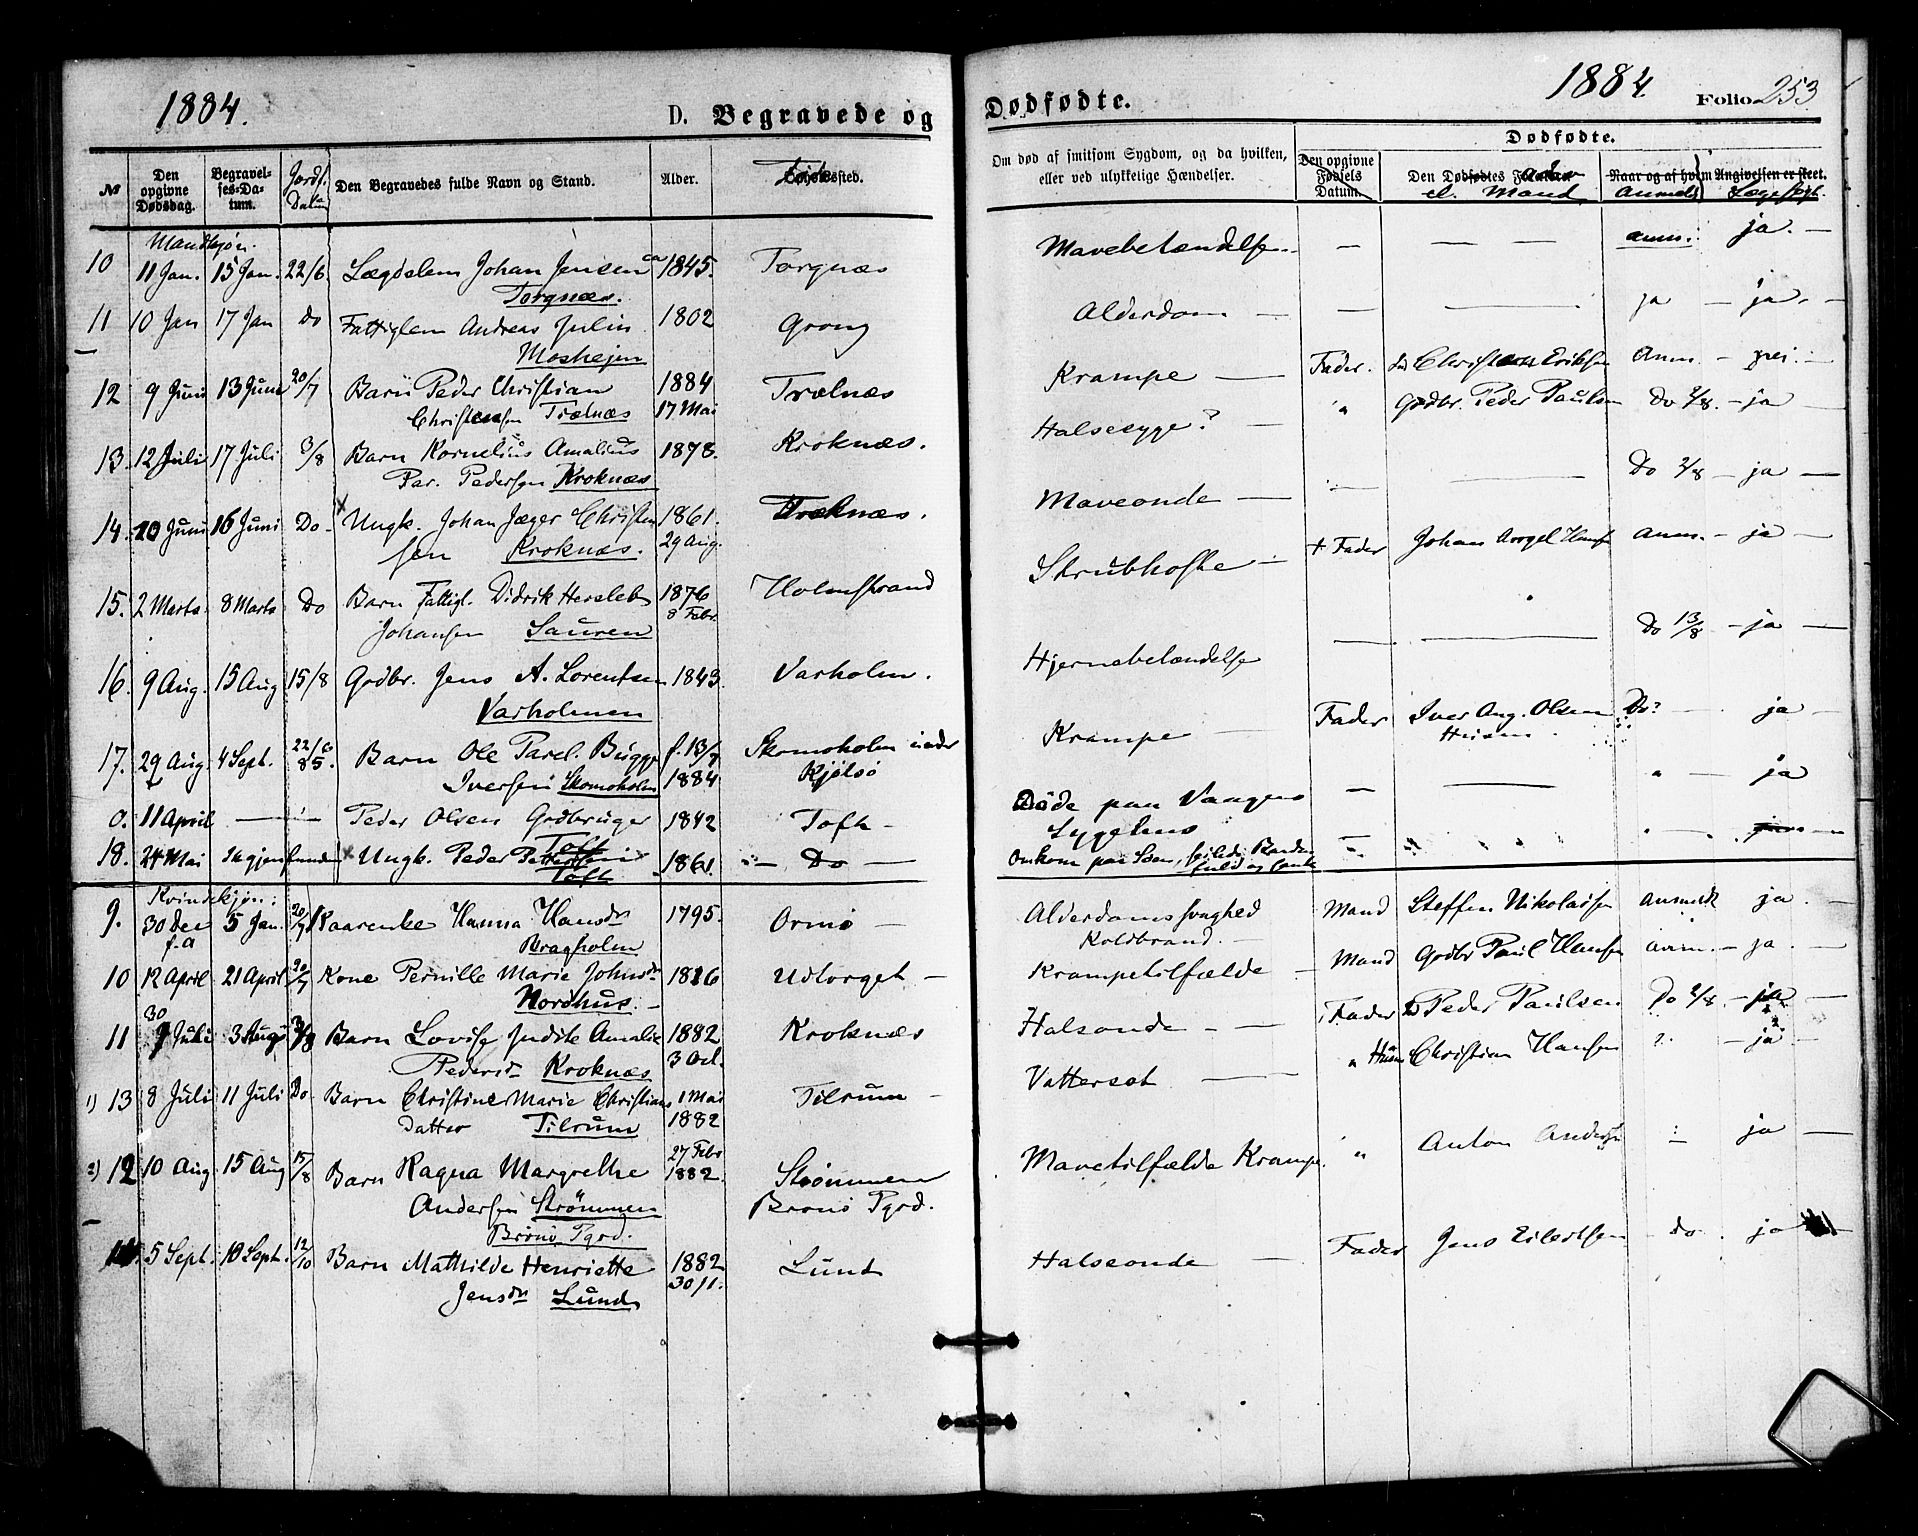 1884.
D. Begravede og
№
Den opgivne Dødsdag.
Begravelses-Datum.
Jordf. Datum
Den Begravedes fulde Navn og Stand.
Alder.
Mandkjøn.
10 11 Jan. 15 Jan. 22/6. Lægdslem Johan Jensen ca 1845. Torgnæs
Torgnæs.
11 10 Jan 17 Jan Do Fattiglem Andreas Julin 1802 Grong
Moshejen
12 9 Juni 13 Juni 20/7 Barn Peder Christian 1884 Trælnæs
Christensen Trælnæs 17 Mai
13. 12 Juli 17 Juli 3/8 Barn Kornelius Amalius 1878. Kroknæs.
Par. Pedersen Kroknæs
14. 10 Juni 16 Juni Do x Ungk. Johan Jæger Christen 1861. Kroknæs.
sen Kroknæs. 29 Aug.
15. 2 Marts 8 Marts Do Barn Fattigl. Didrik Hersleb 1876 Holmstrand
Johansen Sauren 8 Febr.
16. 9 Aug. 15 Aug 15/8 Gdbr. Jens A. Lorentsen 1843. Varholm.
Varholmen
17. 29 Aug 4 Sept. 22/6 85. Barn Ole Parel. Bugge f. 13/7 Skomoholm under
Iversen Skomoholm 1884 Kjølsö
0. 11 April — Peder Olsen Gdbruger 1842 Toft
Toft
18. 24 Mai Ikgjenfunden x Ungk. Peder Pettersen 1861. — Do —
Toft
Kvindekjøn:
9. 30 Dec 5 Jan. 20/7 Kaarenke Hanna Hansdr 1795. Ormö
f.a Bragholm
10 12 April 21 April 20/7 Kone Pernille Marie Johnsdr 1826 Udtorget
Nordhus.
11 30 Juli 3 Aug 3/8 Barn Lovise Judite Amalie 1882 Kroknæs
Pedersdr Kroknæs 3 Oct.
1) 13 8 Juli 11 Juli Do Barn Christine Marie Christians 1 Mai Tilrum
datter Tilrum 1882
2) 12 10 Aug 15 Aug 15/8 Barn Ragna Margrethe 27 Febr 1882. Strømmen
Andersen Strømmen Brønø Pgrd.
Brønø Pgrd.
5 Sept. 10 Sept. 12/10 Barn Mathilde Henriette 1882 Lund
Jensdr Lund 30/1.
Dødfødte.
1884.
Folio 253
Om død af smitsom Sygdom, og da hvilken,
eller ved ulykkelige Hændelser.
Den opgivne Fødsels Datum.
Dødfødte.
Den Dødfødtes
el. Mand
Naar og af hvem Angivelsen er skeet.
Anmeldt
Mavebetændelse — — — anm. ja. —
Alderdom — — — ja — ja. —
Krampe — Fader. Christen Eriksen Anm. — nei.
Halsesyge? — " Gdbr. Peder Paulsen Do 2/8. — ja —
Maveonde — — — Do 2/8 — ja —
Skrubhoste — + Fader Johan Hansen Anm. — ja —
Hjernebetændelse — — Do 13/8 — ja —
Krampe — Fader Iver Aug. Olsen Do? — ja —
Döde paa Vaagens — — " — ja
Sygehus
Omkom paa Söen,
Alderdomssvaghed Mand Steffen Nikolaisen anmeldt ja. —
Koldbrand.
Krampetilfælde — Mand Gdbr Paul Hansen anm. — ja. —
Halsonde — Fader Peder Paulsen Do 2/8 — ja —
Vattersot — " Christian Hansen ?. — ja
Mavetilfælde Krampe. " Anton Andersen ja —
Halseonde — Fader Jens Eilertsen — do. ja